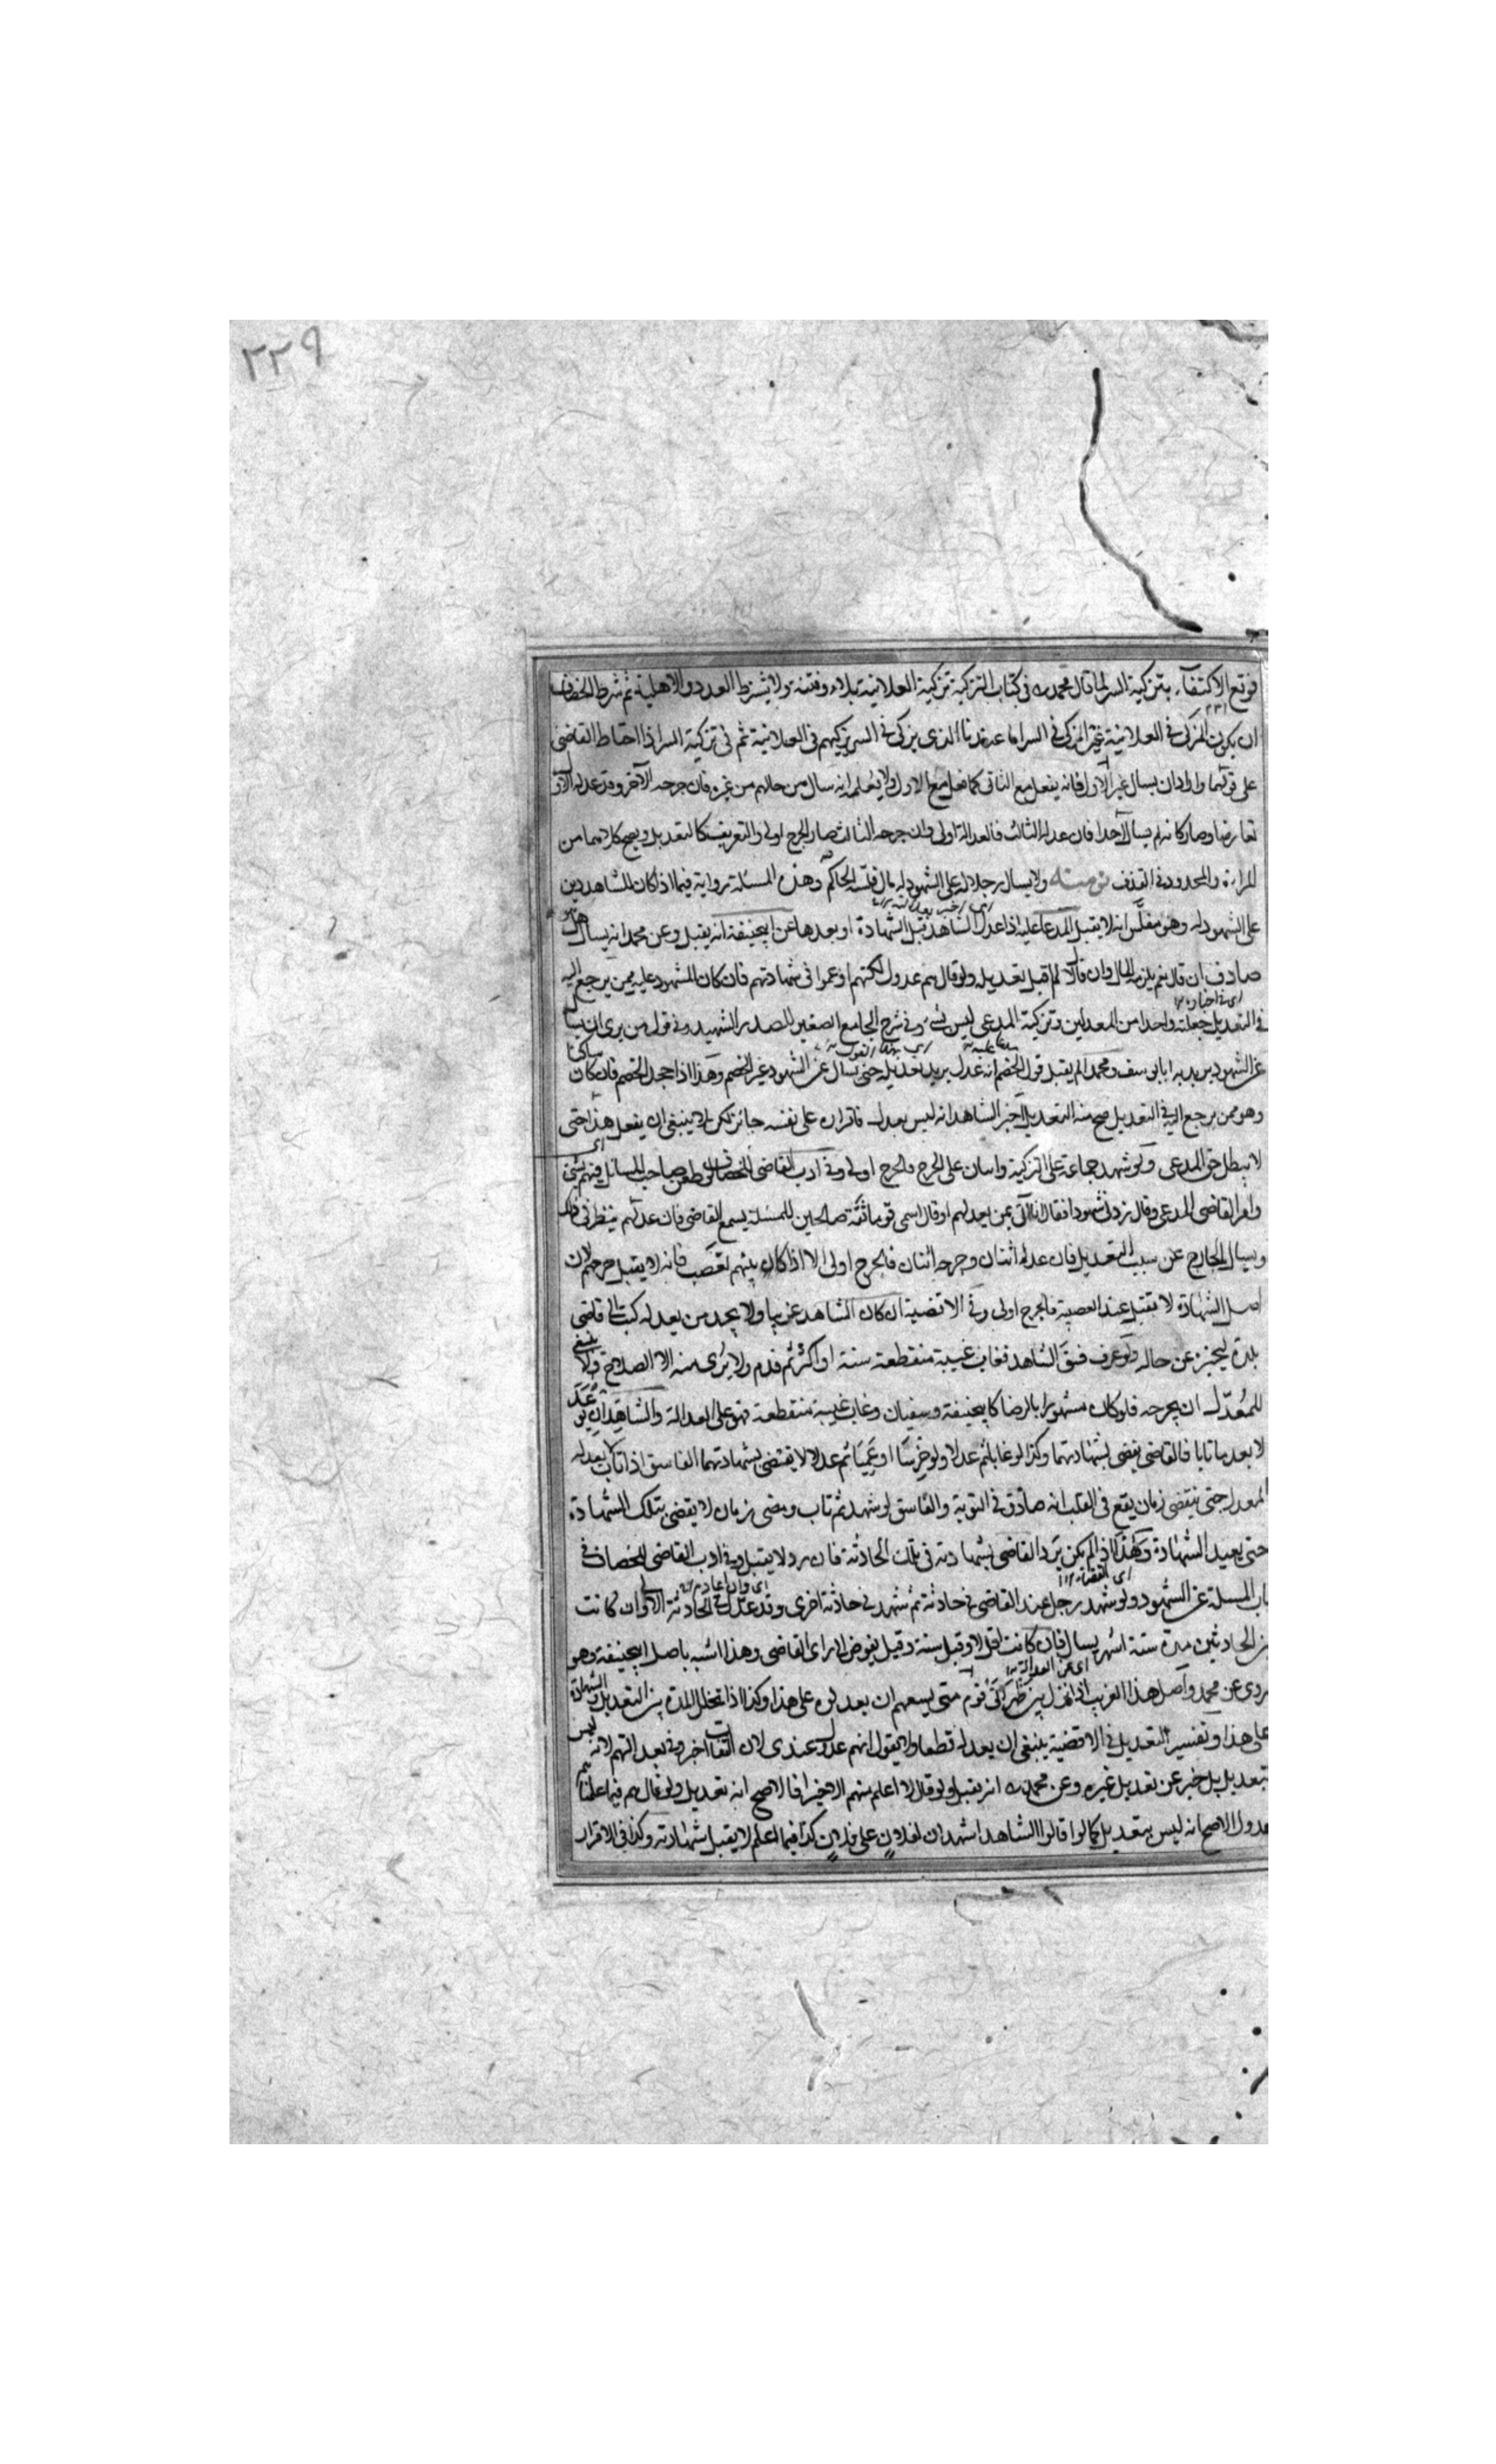 ٢٢٩
فوقع الاكتفاء بتزكية السر لما قال محمد رح في كتاب التزكية تزكية العلانية بلاء وفتنة ولا يشترط العدد والاهلية ثم شرط الخصاف
ان يكون المزكي في العلانية غير المزكي في السر اما عندنا الذي يزكي في السر يزكيهم في العلانية ثم في تزكية السر اذا احتاط القاضي
على قولهما واراد ان يسال غير الاول فانه يفعل مع الثاني كما فعل مع الاول ولا يعلم انه سال من حالهم من غيره فان جرحه الآخر وقد عدله الاول
تعارضا وصار كانه لم يسال احدا فان عدله الثالث فالعدالة اولى وان جرحه الثالث صار الجرح اولى والتعريف كالتعديل ويصح كلاهما من
المراة والمحدود في القذف نوع منه ولا يسال رجلا له على المشهود له مال فلسه الحاكم وهذه المسئلة رواية فيما اذا كان للشاهد دين
على المشهود له وهو مفلس انه لا يقبل المدعا عليه اذا عدل الشاهد قبل الشهادة او بعدها عن ابيحنيفة انه يقبل وعن محمد انه يسال هل هو
صادف ان قال نعم يلزمه المال وان قال لا لم اقبل تعديله ولو قال هم عدول لكنهم اوهموا في شهادتهم فان كان المشهود عليه ممن يرجع اليه
في التعديل جعلته واحدا من المعدلين وتزكية المدعي ليس بشيء وفي شرح الجامع الصغير للصدر الشهيد وفي قول من يرى ان يسال
عن الشهود يريد به ابا يوسف ومحمد لم يقبل قول الخصم انه عدل يريد تعديله حتى يسال عن الشهود غير الخصم وهذا اذا جحد الخصم فان كان ساكتا
وهو ممن يرجع اليه في التعديل صح منه التعديل اخبر الشاهد انه ليس بعدل فاقراره على نفسه جائز لكن لا ينبغي ان يفعل هذا حتى
لا يبطل حق المدعي ولو شهد جماعة على التزكية واثنان على الجرح فالجرح اولى وفي ادب القاضي للخصاف لو طعن صاحب المسائل فيهم بشيء
وامر القاضي المدعي وقال زدني شهودا فقال انا آتي بمن يعدلهم او قال اسمي قوما ثقة صالحين للمسئلة يسمع القاضي فان عدلهم ينظر في ذلك
ويسال الجارح عن سبب التعديل فان عدله اثنان وجرحه اثنان فالجرح اولى الا اذا كان بينهم تعصب فانه لا يقبل جرحهم لان
اصل الشهادة لا يقبل عند العصبية فالجرح اولى وفي الاقضية ان كان الشاهد غريبا ولا يجد من يعدله كتب الى قاضي
بلده ليخبره عن حاله ولو عرف فسق الشاهد فغاب غيبة منقطعة سنة او اكثر ثم قدم ولا يرى منه الا الصلاح ولا ينبغي
للمعدل ان يجرحه فلو كان مشهورا بالرضا كابيحنيفة وسفيان وغاب غيبة منقطعة فهو على العدالة والشاهدان لو عد
لا بعد ما تابا فالقاضي يقضي بشهادتهما وكذا لو غابا ثم عدلا ولو خرسا او عميا ثم عدلا لا يقتضي بشهادتهما الفاسق اذا تاب لا يعدله
المعدل حتى ينقضي زمان يقع في القلب انه صادق في التوبة والفاسق لو شهد ثم تاب ومضى زمان لا يقضي بتلك الشهادة
حتى يعيد الشهادة وهذا اذا لم يكن يرد القاضي بشهادته في تلك الحادثة فان رد لا يقبل وفي ادب القاضي للخصاف في
باب المسئلة عن الشهود ولو شهد رجل عند القاضي في حادثة ثم شهد في حادثة اخرى وقد عدل في الحادثة الاولى ان كانت
من الحادثتين مدة ستة اشهر يسال فان كانت اقل لا وقبل سنة وقيل يفوض الى راي القاضي وهذا اشبه باصل ابيحنيفة وهو
مروي عن محمد واصل هذا الغريب اذا نزل بين ظهراني قوم متى يسعهم ان يعدلوه على هذا وكذا اذا تخلل المدة بين التعديل والشهادة
على هذا وتفسير التعديل في الاقضية ينبغي ان يعدله قطعا ولا يقول انهم عدول عندي لان الثقات اخروني بعدالتهم لانه ليس
بتعديل بل خبر عن تعديل غيره وعن محمد رح انه يقبل ولو قال لا اعلم منهم الا خيرا فالاصح انه تعديل ولو قال هم فيما علمنا
عدول الاصح انه ليس بتعديل كما لو قالوا الشاهد اشهد ان لفلان على فلان كذا فيما اعلم لا يقبل شهادته وكذا في الاقرار